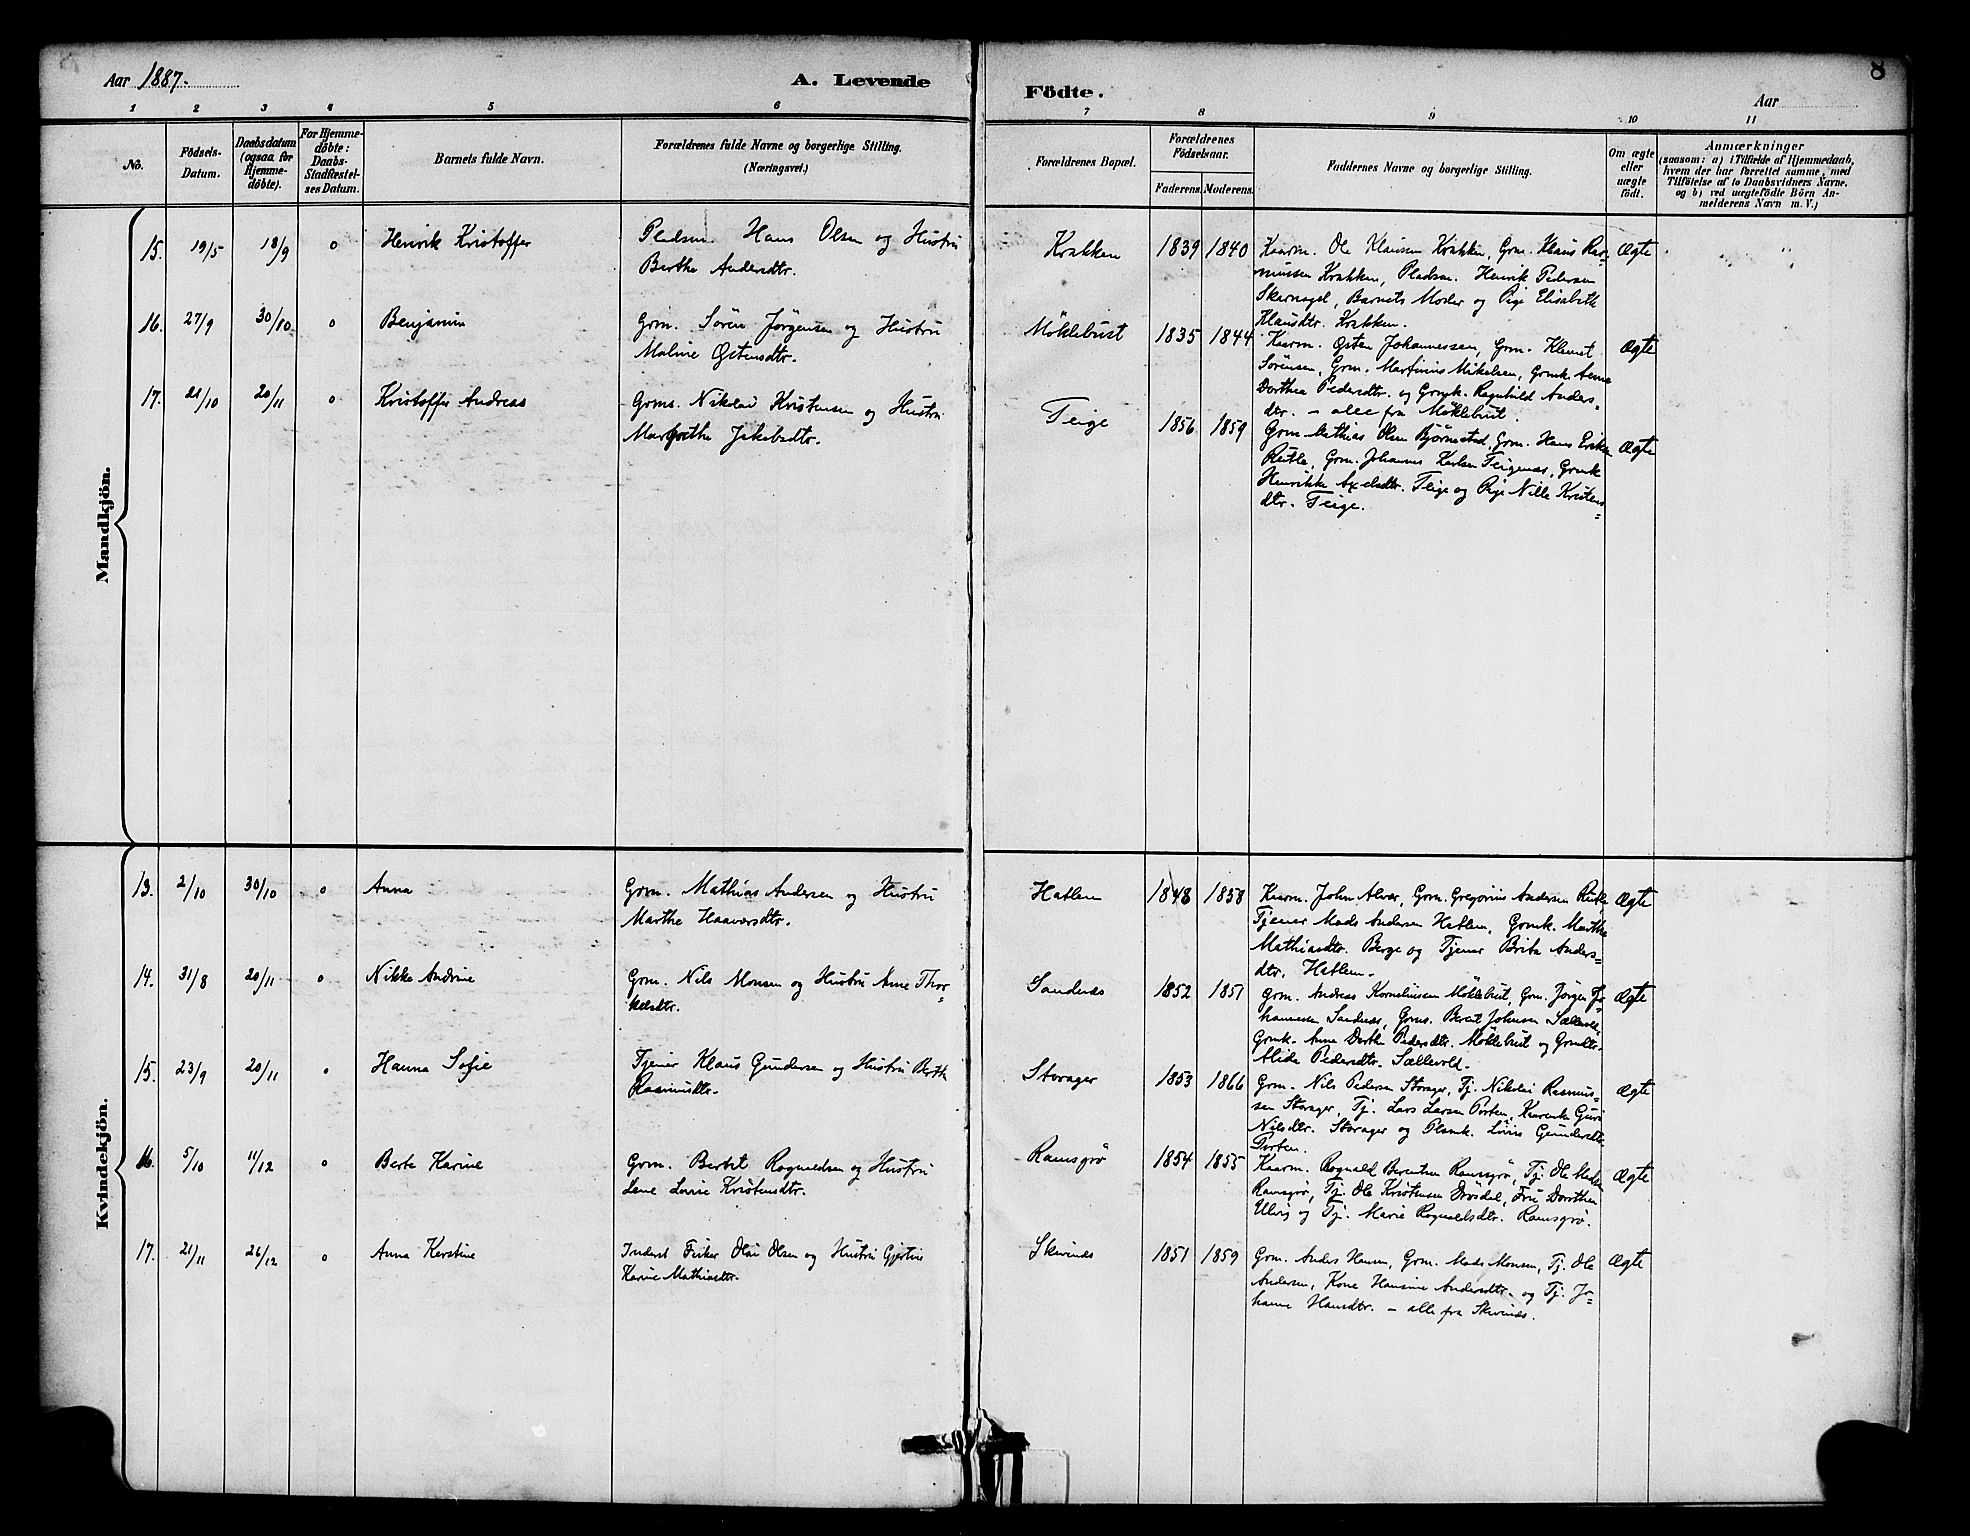 Aar 1887.
A. Levende
Födte.
8
Aar
1 2 3 4 5 6 7 8 9 10 11
No.
Födsels-
Datum.
Daabsdatum
(ogsaa for
Hjemme-
döbte).
For Hjemme-
döbte:
Daabs-
Stadfæstel-
ses Datum.
Barnets fulde Navn.
Forældrenes fulde Navne og borgerlige Stilling.
(Næringsvei.)
Forældrenes Bopæl.
Forældrenes
Födselsaar.
Faderens. Moderens.
Faddernes Navne og borgerlige Stilling.
Om ægte
eller
uægte
födt.
Anmærkninger
(saasom: a) i Tilfælde af Hjemmedaab,
hvem der har forrettet samme, med
Tilföielse af to Daabsvidners Navne,
og b) ved uægtefödte Börn An-
melderens Navn m. V.)
Mandkjön.
15. 19/5 18/9 o Henrik Kristoffer
Pladsm. Hans Olsen og Hustru
Berthe Andersdtr.
Krakken 1839 1840
Kaarm. Ole Klausen Krakken, Grm. Klaus Ras-
mussen Krakken, Pladsm. Henrik Pedersen
Skarnagel, Barnets Moder og Pige Elisabeth
Klausdtr. Krakken.
Ægte
16. 27/9 30/10 o Benjamin
Grm. Sören Jørgensen og Hustru
Maline Østensdtr.
Möklebust 1835 1844
Kaarm. Østen Johannessen, Grm. Klemet
Sørensen, Grm. Martinus Mikelsen, Grmk. Anne
Dorthea Pedersdtr. og Grmk. Ragnhild Anders-
dtr. – alle fra Möklebust.
Ægte
17. 21/10 20/11 o Kristoffer Andreas
Grms. Nikolai Kristensen og Hustru
Margrethe Jakobsdtr.
Teige 1856 1859
Grm. Mathias Olsen Bjørnestad, Grm. Hans Eriksen
Rutle, Grm. Johannes Karlsen Teigenæs, Grmk
Henrikke Axelsdtr. Teige og Pige Nille Kristens-
dtr. Teige.
Ægte
Kvindekjön.
13. 2/10 30/10 o Anna
Grm. Mathias Andersen og Hustru
Marthe Haaversdtr.
Hatlem 1848 1858
Kaarm. John Alver, Grm. Gregorius Andersen Rutle
Tjener Mads Andersen Hatlem, Grmk. Marthe
Mathiasdtr. Berge og Tjener Brita Anders-
dtr. Hatlem.
Ægte
14. 31/8 20/11 o Nikka Andrine
Grm. Nils Monsen og Hustru Anne Thor-
kelsdtr.
Sandnæs 1852 1851
Grm. Andreas Korneliussen Möklebust, Grm. Jørgen Jo-
hannesen Sandnæs, Grms. Berent Johnsen Sællevold
Grmk. Anne Dorthe Pedersdtr. Möklebust og Grmdtr.
Alida Pedersdtr. Sællevold.
Ægte
15. 23/9 20/11 o Hanna Sofie
Tjener Klaus Gundersen og Hustru Berthe
Rasmusdtr.
Storager 1853 1866
Grm. Nils Pedersen Storager, Tj. Nikolai Rasmus-
sen Storager, Tj. Lars Larsen Porten, Guri
Nilsdtr. Storager og Plsmk. Lovise Gundersdtr.
Porten.
Ægte
16. 5/10 11/12 o Berte Karine
Grm. Bertel Rognaldsen og Hustru
Lene Lovise Kristensdtr.
Ramsgrö 1854 1855
Kaarm. Rognald Berentsen Ramsgrö, Tj. Ole Madsen
Ramsgrö, Tj. Ole Kristensen Drösdal, Fru Dorothea
Ulvig og Tj. Marie Rognaldsdtr. Ramsgrö.
Ægte
17. 21/11 26/12 o Anna Kerstine
Inderst Fisker Olai Olsen og Hustru Gjertine
Karine Mathiasdtr.
Skivenæs 1851 1859
Grm. Anders Hansen, Grm. Mads Monsen, Tj. Ole
Andersen, Kone Hansine Andersdtr. og Tj. Jo-
hanne Hansdtr. – alle fra Skivenæs.
Ægte